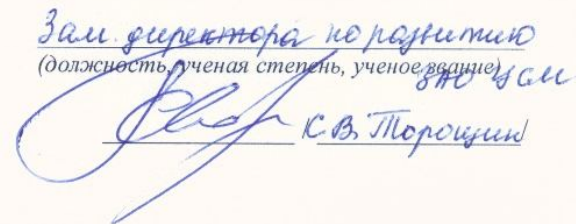 Зам. директора по развитию
(должность, ученая степень, ученое звание)
ЗАО ЦСМ
К.В. Торощин